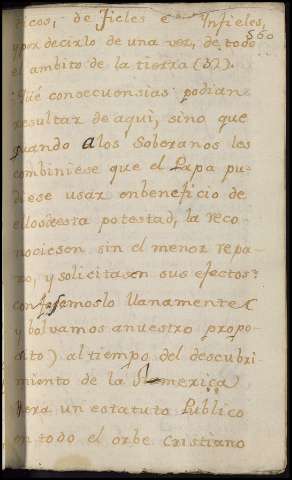 ticos, de Fieles e Infieles,
560
y por decirlo de una vez, de todo
el ambito de la tierra (b7).
Què consecuensias podian
resultar de aqui, sino que
quando a los Soberanos les
combiniese que el Papa pu-
diese usar enbeneficio de
ellos esta potestad, la reco-
nociesen sin el menor repa-
ro, y solicitasen sus efectos?
confesamoslo llanamente (
y bolvamos anuestro propo-
sito) al tiempo del descubri-
miento de la America
era un estatuto Publico
en todo el orbe cristiano